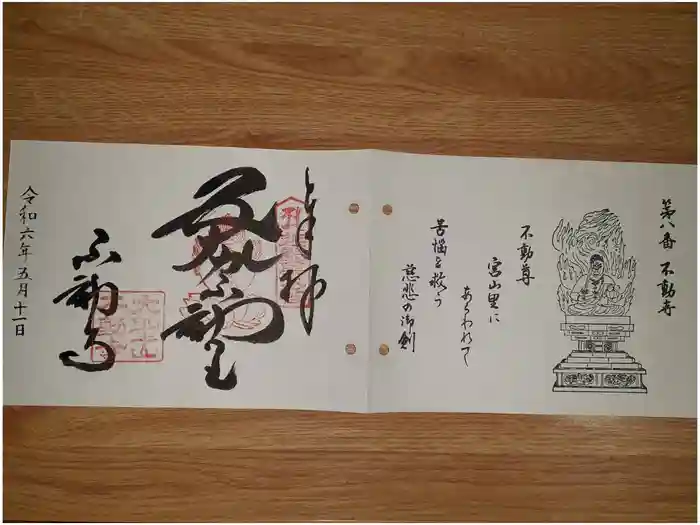 第八番 不動寺
不動尊
宮山里に
あらわれて
苦悩を救う
慈悲の御剣
奉拝
不動寺
令和六年五月十一日